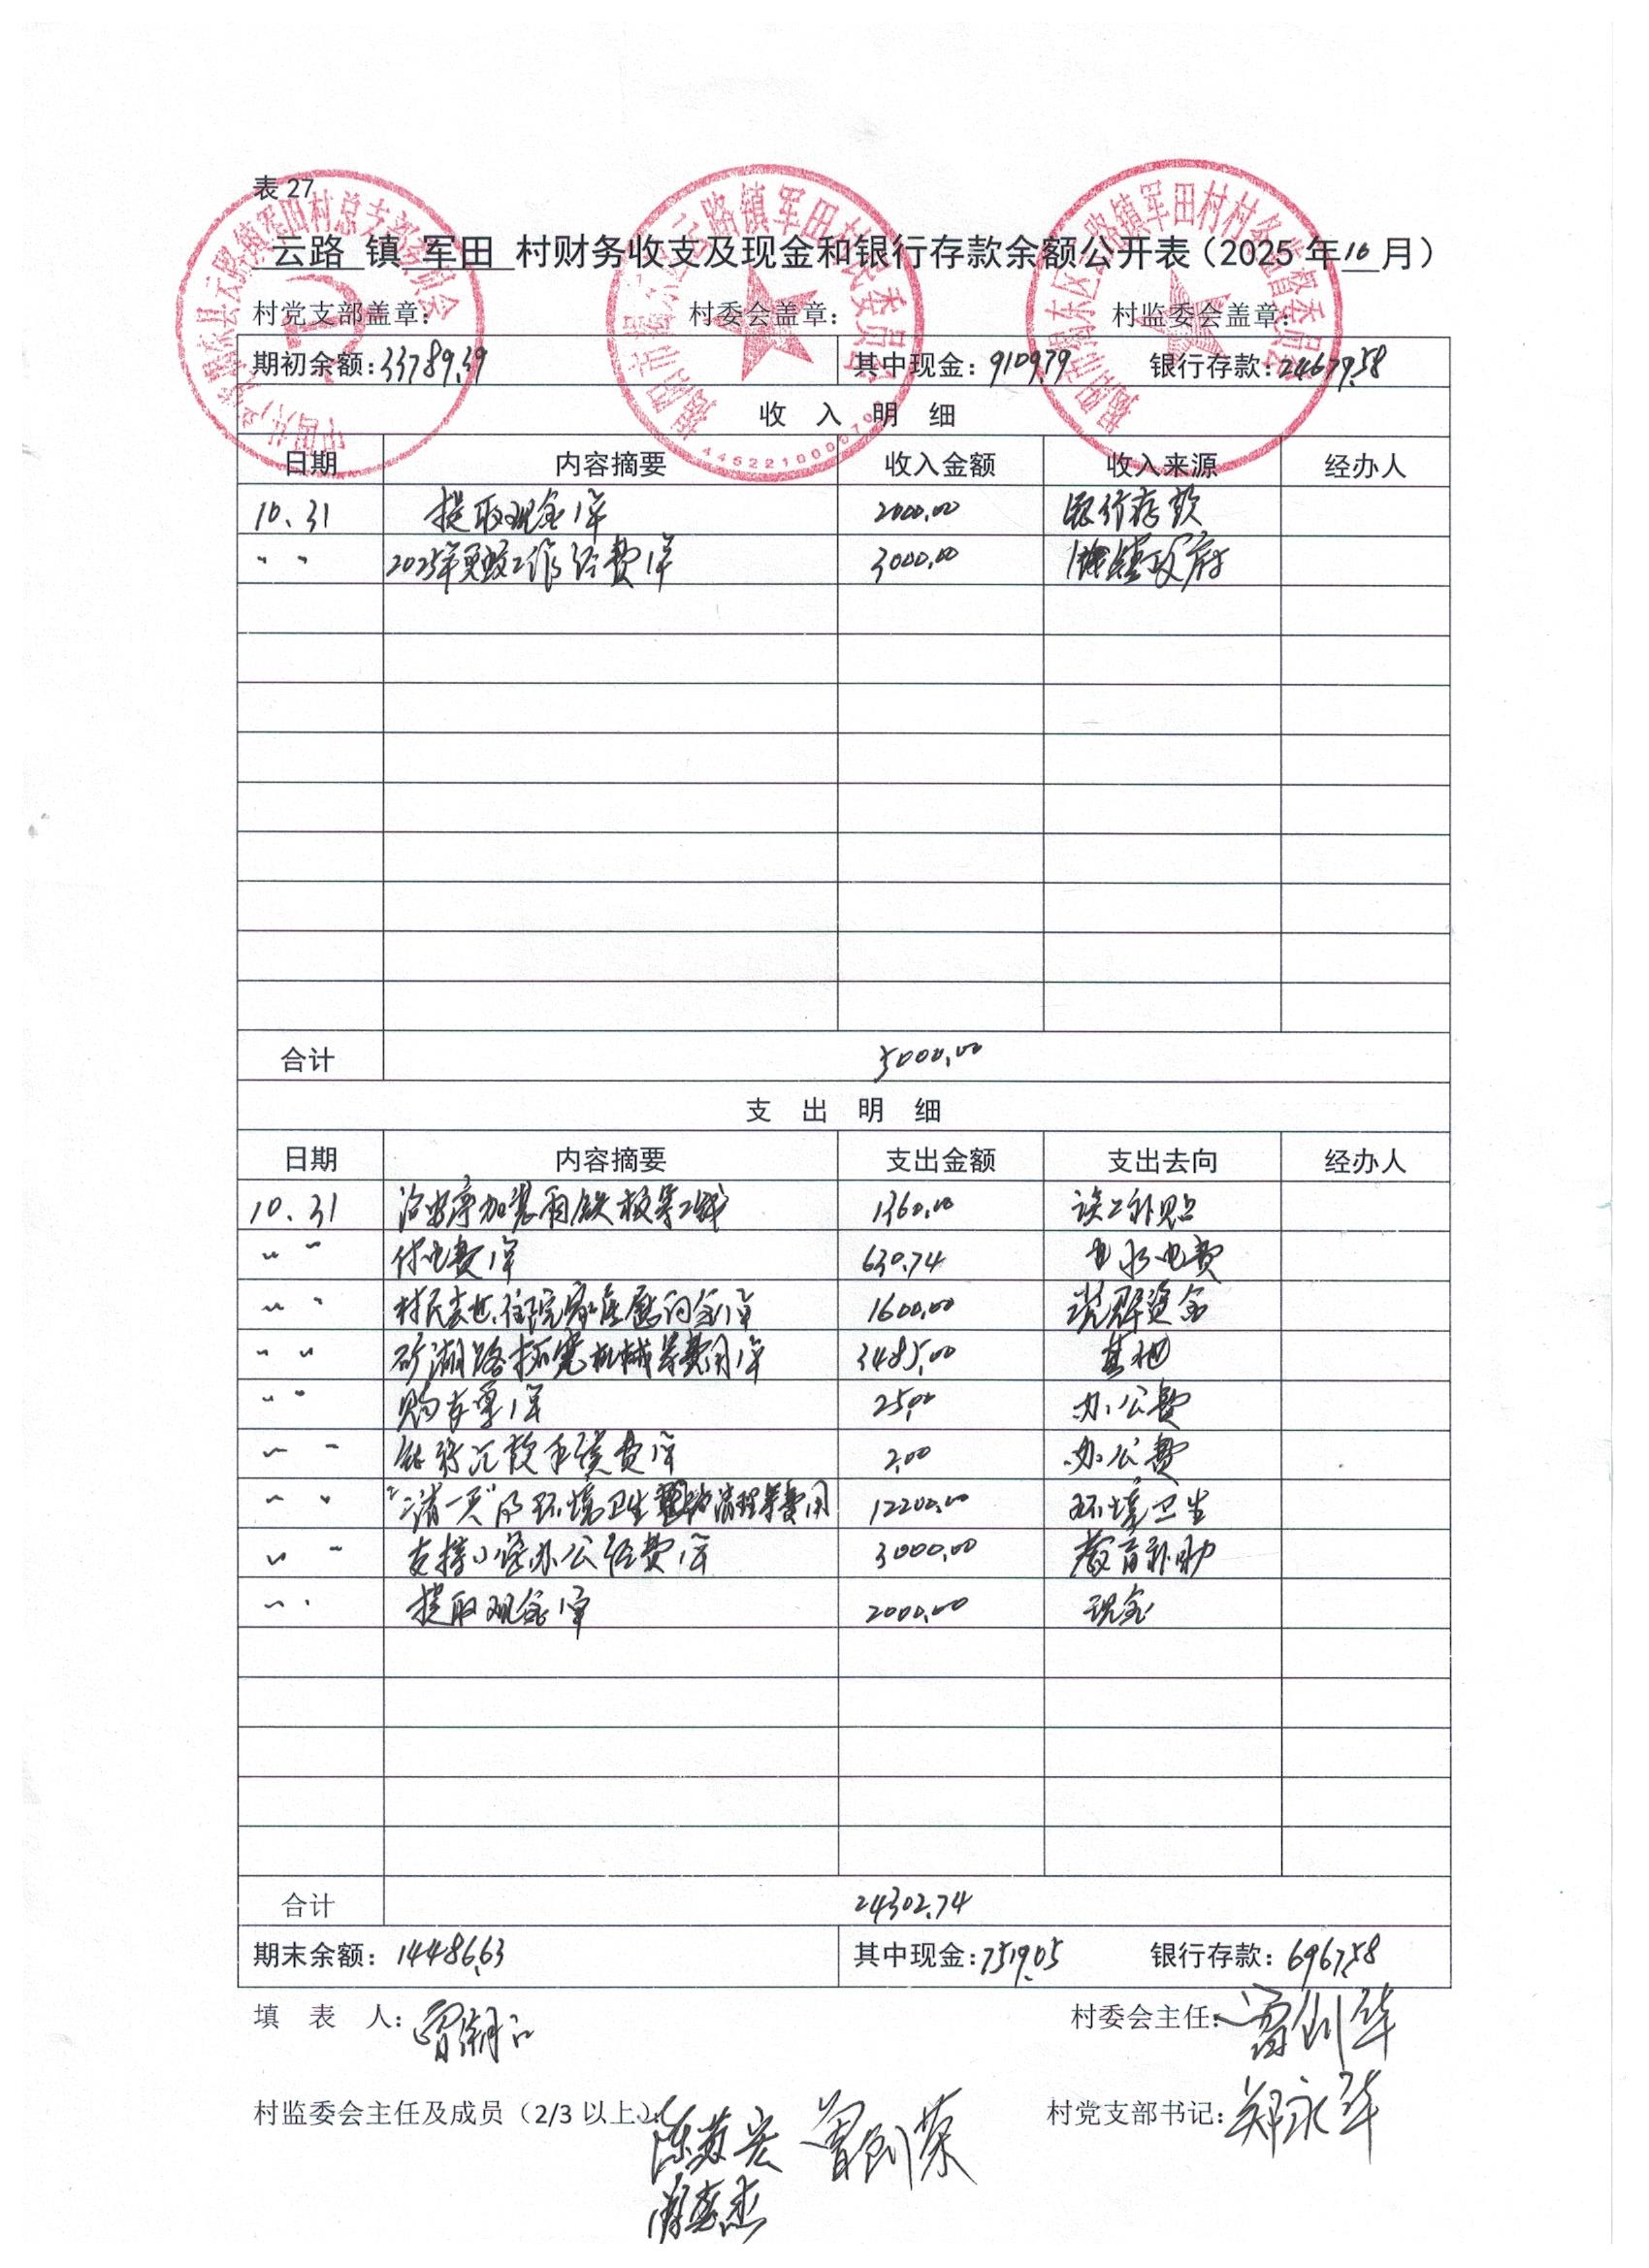 表 27
云路 镇 军田 村财务收支及现金和银行存款余额公开表（2025 年10月）
村党支部盖章： 村委会盖章： 村监委会盖章：
期初余额：33789.39 其中现金：9109.79 银行存款：24679.58
收 入 明 细
日期 内容摘要 收入金额 收入来源 经办人
10.31 提取现金1单 2000.00 银行存款
〃 〃 2025年 工作经费1单 3000.00 镇政府
合计 5000.00
支 出 明 细
日期 内容摘要 支出金额 支出去向 经办人
10.31 加装雨 铁板等工钱 1360.00 误工补贴
〃 〃 付电费1单 630.74 水电费
〃 〃 村民去世、住院 慰问金1单 1600.00 资金
〃 〃 湖路拓宽机械等费用1单 3485.00 其他
〃 〃 购 1单 25.00 办公费
〃 〃 银行汇款手续费1单 2.00 办公费
〃 〃 环境卫生 清理等费用 12200.00 环境卫生
〃 〃 支持小学办公经费1单 3000.00 教育补助
〃 〃 提取现金1单 2000.00 现金
合计 24302.74
期末余额：14486.63 其中现金：7519.05 银行存款：6967.58
填 表 人： 村委会主任：
村监委会主任及成员（2/3 以上）： 村党支部书记：郑永华